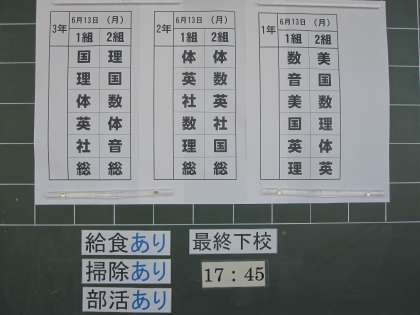 3年 6月13日 (月)
1組 2組
国 理
理 国
体 数
英 体
社 音
総 総
2年 6月13日 (月)
1組 2組
体 体
英 数
社 英
数 社
理 国
総 総
1年 6月13日 (月)
1組 2組
数 美
音 国
美 数
国 理
英 体
理 英
給食あり
掃除あり
部活あり
最終下校
17:45